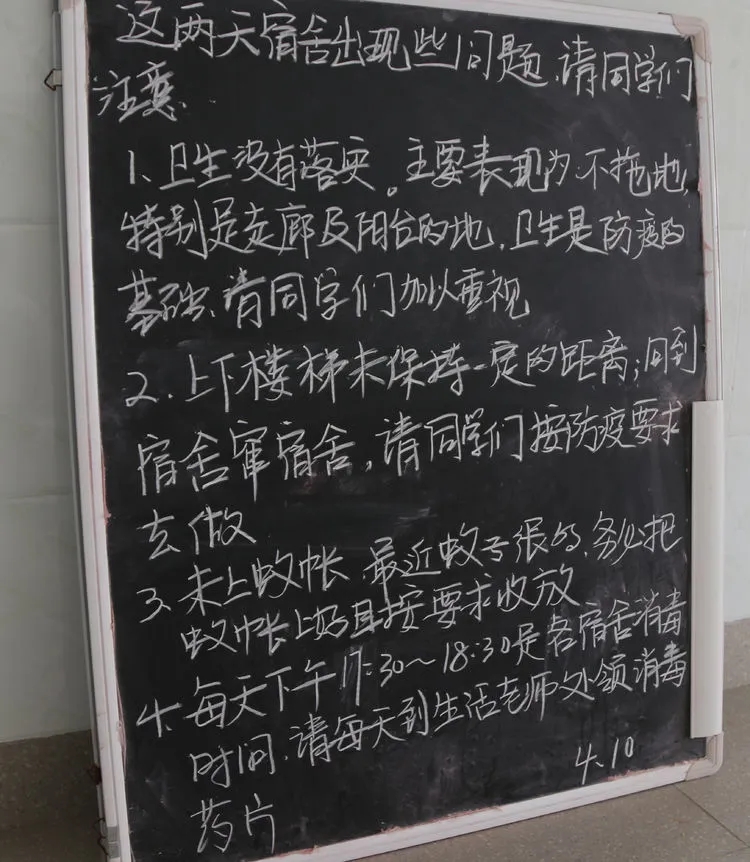 这两天宿舍出现些问题,请同学们
注意.
1、卫生没有落实。主要表现为:不拖地,
特别是走廊及阳台的地,卫生是防疫的
基础,请同学们加以重视
2.上下楼梯未保持一定的距离;回到
宿舍窜宿舍,请同学们按防疫要求
去做
3、未上蚊帐,最近蚊子很多,务必把
蚊帐上好且按要求收放
4、每天下午17:30~18:30是各宿舍消毒
时间,请每天到生活老师处领消毒
药片
4.10